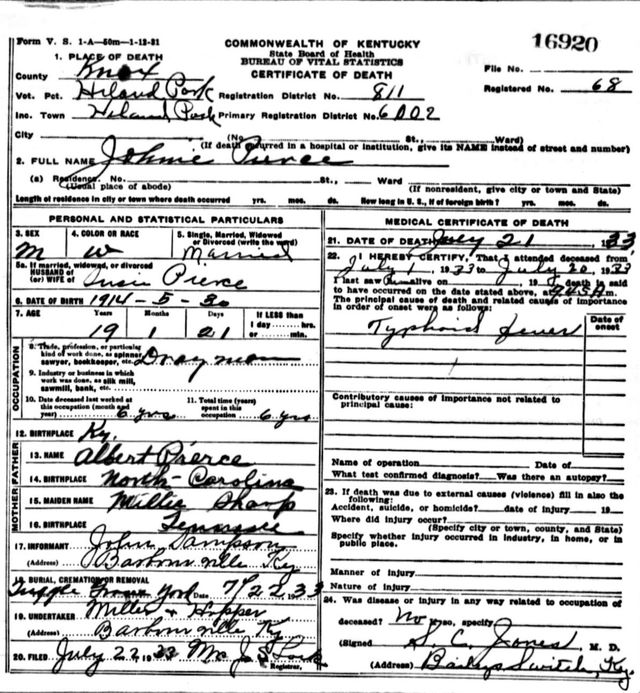 Form V. S. 1-A—50m—1-12-31
COMMONWEALTH OF KENTUCKY
State Board of Health
BUREAU OF VITAL STATISTICS
CERTIFICATE OF DEATH
16920
File No.
Registered No. 68
1. PLACE OF DEATH
County Knox
Vot. Pct. Hiland Park Registration District No. 811
Inc. Town Hiland Park Primary Registration District No. 6002
City (No. St., Ward)
(If death occurred in a hospital or institution, give its NAME instead of street and number)
2. FULL NAME Johnie Pierce
(a) Residence. No. St., Ward
(Usual place of abode) (If nonresident, give city or town and State)
Length of residence in city or town where death occurred yrs. mos. ds. How long in U. S., if of foreign birth? yrs. mos. ds.
PERSONAL AND STATISTICAL PARTICULARS
3. SEX 4. COLOR OR RACE 5. Single, Married, Widowed
or Divorced (write the word)
M W Married
5a. If married, widowed, or divorced
HUSBAND of
(or) WIFE of Susie Pierce
6. DATE OF BIRTH 1914-5-30
7. AGE Years Months Days If LESS than
1 day hrs.
or min.
19 1 21
OCCUPATION
8. Trade, profession, or particular
kind of work done, as spinner,
sawyer, bookkeeper, etc. Drayman
9. Industry or business in which
work was done, as silk mill,
sawmill, bank, etc.
10. Date deceased last worked at
this occupation (month and
year) 6 yrs
11. Total time (years)
spent in this
occupation 6 yrs
12. BIRTHPLACE Ky.
FATHER
13. NAME Albert Pierce
14. BIRTHPLACE North Carolina
MOTHER
15. MAIDEN NAME Millie Sharp
16. BIRTHPLACE Tennessee
17. INFORMANT John Sampson
(Address) Barbourville Ky
18. BURIAL, CREMATION OR REMOVAL
York Date 7/22 1933
19. UNDERTAKER Miller & Hopper
(Address) Barbourville Ky
20. FILED July 22 1933 Mrs J. S. Lock
Registrar.
MEDICAL CERTIFICATE OF DEATH
21. DATE OF DEATH July 21 1933
22. I HEREBY CERTIFY, That I attended deceased from
July 1 1933 to July 20 1933
I last saw h alive on 19 death is said
to have occurred on the date stated above, at m.
The principal cause of death and related causes of importance
in order of onset were as follows:
Date of
onset
Typhoid fever
Contributory causes of importance not related to
principal cause:
Name of operation Date of
What test confirmed diagnosis? Was there an autopsy?
23. If death was due to external causes (violence) fill in also the
following:
Accident, suicide, or homicide? date of injury 19
Where did injury occur?
(Specify city or town, county, and State)
Specify whether injury occurred in industry, in home, or in
public place.
Manner of injury
Nature of injury
24. Was disease or injury in any way related to occupation of
deceased? No If so, specify
(Signed S. C. Jones M. D.
(Address) Baileys Switch, Ky.